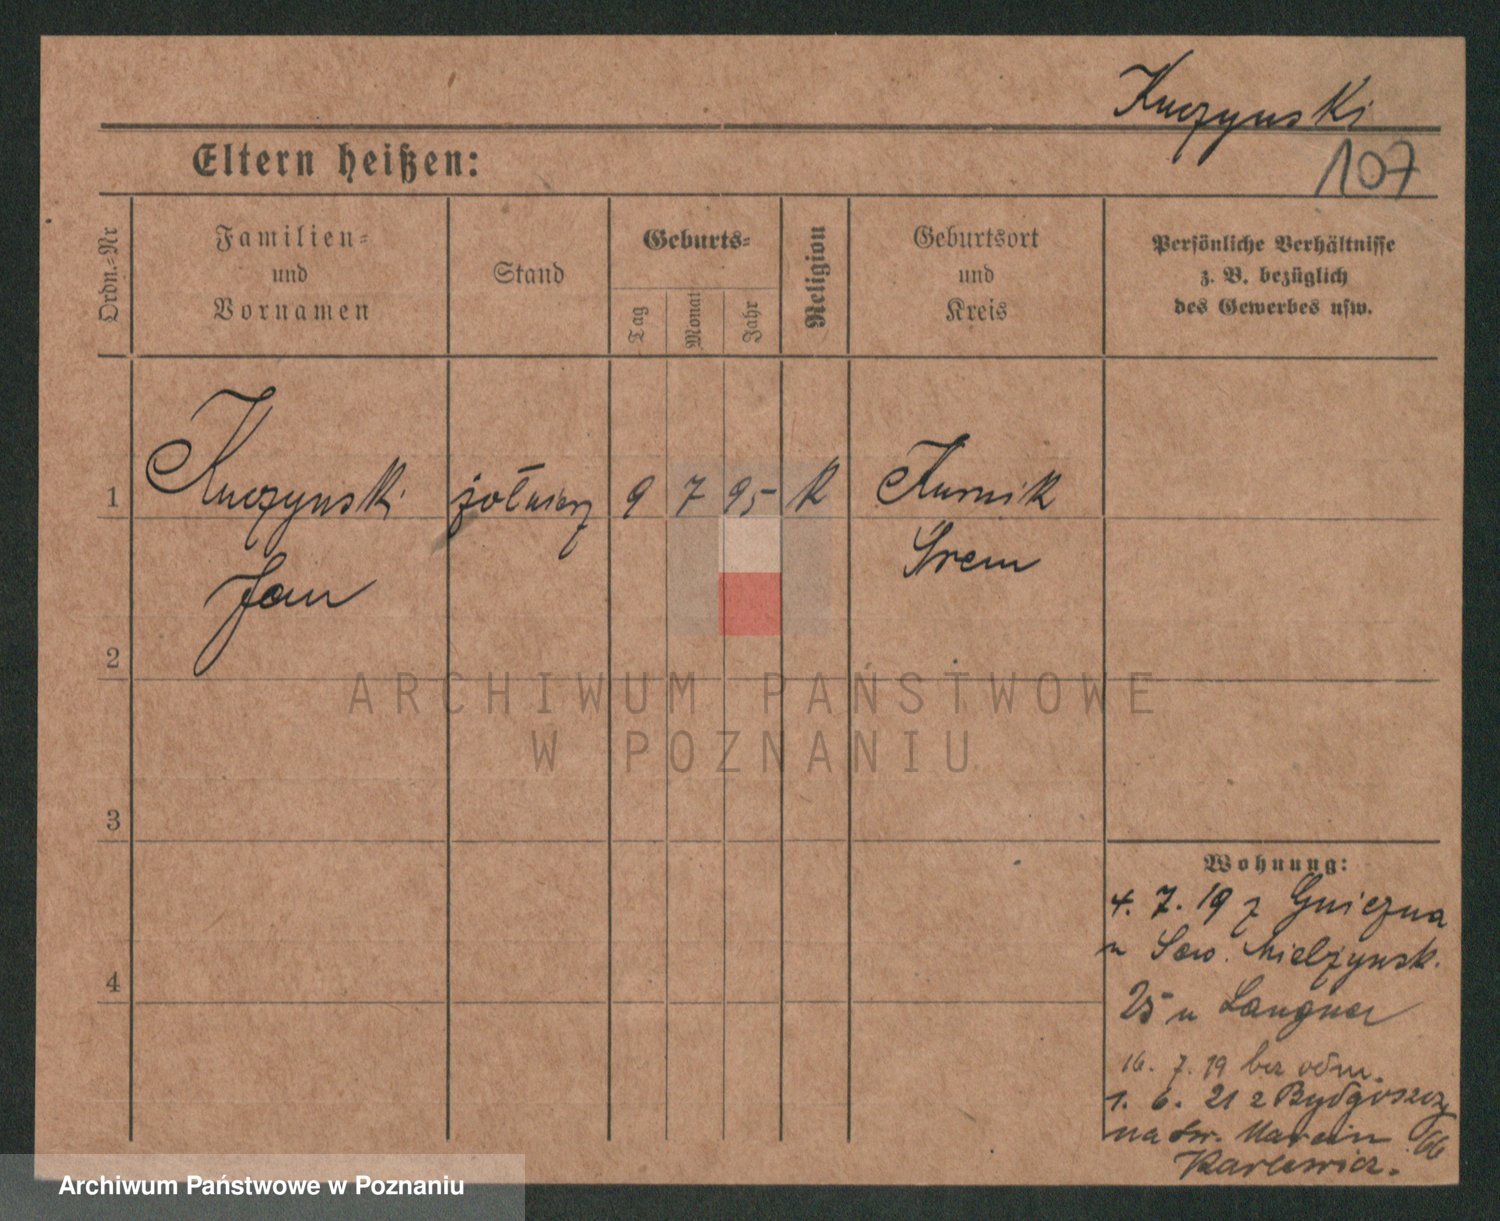 Kuczynski
107
Eltern heißen:
Ordn.-Nr
Familien-
und
Vornamen
Stand
Geburts-
Tag
Monat
Jahr
Religion
Geburtsort
und
Kreis
Persönliche Verhältnisse
z. B. bezüglich
des Gewerbes usw.
1
Kuczynski
Jan
żołnierz
9
7
95
K
Kurnik
Śrem
2
3
4
ARCHIWUM PAŃSTWOWE
W POZNANIU
Wohnung:
4. 7. 19 z Gniezna
n Sew. Mielzynsk.
25 u Langner
16. 7. 19 bez odm.
1. 6. 21 z Bydgoszczy
na św. Marcin 66
Karlewicz.
Archiwum Państwowe w Poznaniu